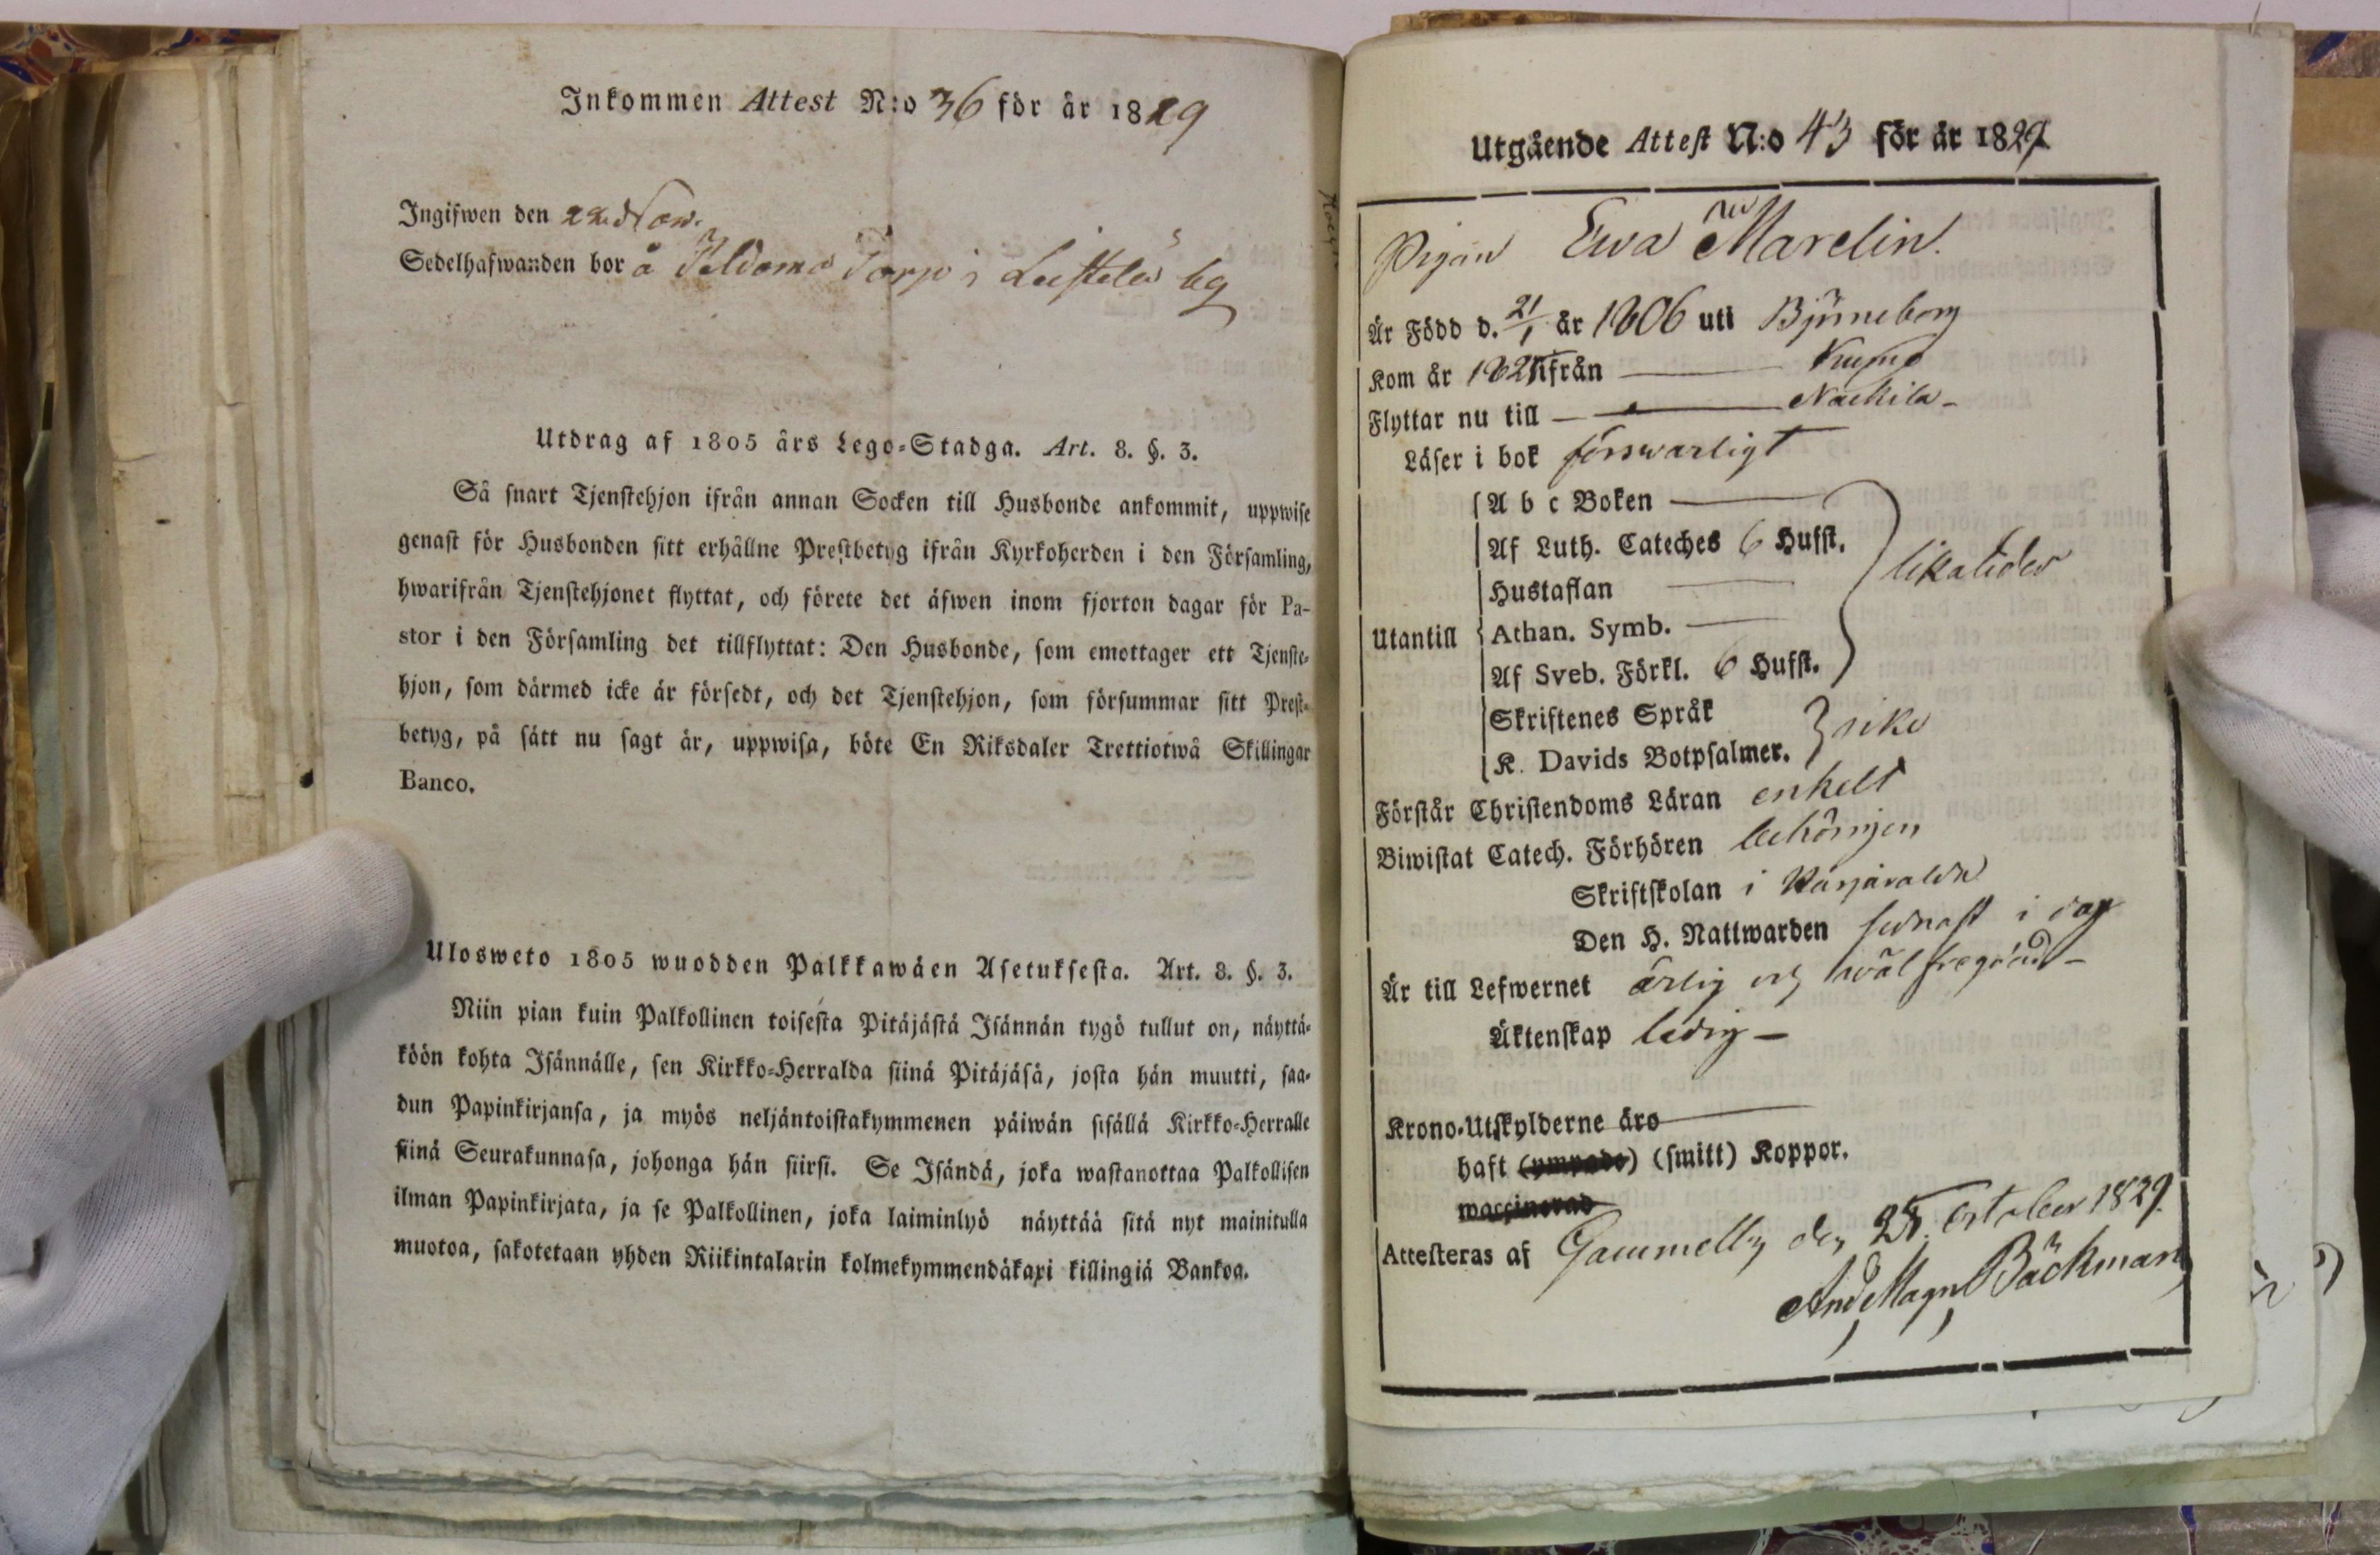 Inkommen Attest N:o 36 för år 1829
Ingifwen den 22 Now.
Sedelhafwanden bor å Torp i Leistela by
Utdrag af 1805 års Lego-Stadga. Art. 8. §. 3.
Så snart Tjenstehjon ifrån annan Socken till Husbonde ankommit, uppwise
genast för Husbonden sitt erhållne Prestbetyg ifrån Kyrkoherden i den Församling,
hwarifrån Tjenstehjonet flyttat, och förete det äfwen inom fjorton dagar för Pa-
stor i den Församling det tillflyttat: Den Husbonde, som emottager ett Tjenste-
hjon, som därmed icke är försedt, och det Tjenstehjon, som försummar sitt Prest-
betyg, på sätt nu sagt är, uppwisa, böte En Riksdaler Trettiotwå Skillingar
Banco.
Ulosweto 1805 wuodden Palkkawäen Asetuksesta. Art. 8. §. 3.
Niin pian kuin Palkollinen toisesta Pitäjästä Isännän tygö tullut on, näyttä-
köön kohta Isännälle, sen Kirkko-Herralda siinä Pitäjäsä, josta hän muutti, saa-
dun Papinkirjansa, ja myös neljäntoistakymmenen päiwän sisällä Kirkko-Herralle
siinä Seurakunnasa, johonga hän siirsi. Se Isändä, joka wastanottaa Palkollisen
ilman Papinkirjata, ja se Palkollinen, joka laiminlyö näyttää sitä nyt mainitulla
muotoa, sakotetaan yhden Riikintalarin kolmekymmendäkaxi killingiä Bankoa.
Utgående Attest N:o 43 för år 1829
Pigan Ewa Marelin.
Är Född d. 21/1 år 1806 uti Björneborg
Kom år ifrån Kumo
Flyttar nu till Nackila
Läser i bok förswarligt
A b c Boken
Af Luth. Cateches 6 Hufst.
Hustaflan likaledes
Utantill Athan. Symb.
Af Sveb. Förkl. 6 Hufst.
Skriftenes Språk
K. Davids Botpsalmer. icke
Förstår Christendoms Läran enkelt
Biwistat Catech. Förhören behörigen
Skriftskolan i
Den H. Nattwarden sednast i dag
Är till Lefwernet ärlig och wäl frägdad
Äktenskap ledig
Krono-Utskylderne äro
haft (ympade) (smitt) Koppor.
waccinerad
Attesteras af Gammelby den 25 October 1829.
And Magn Bäckman